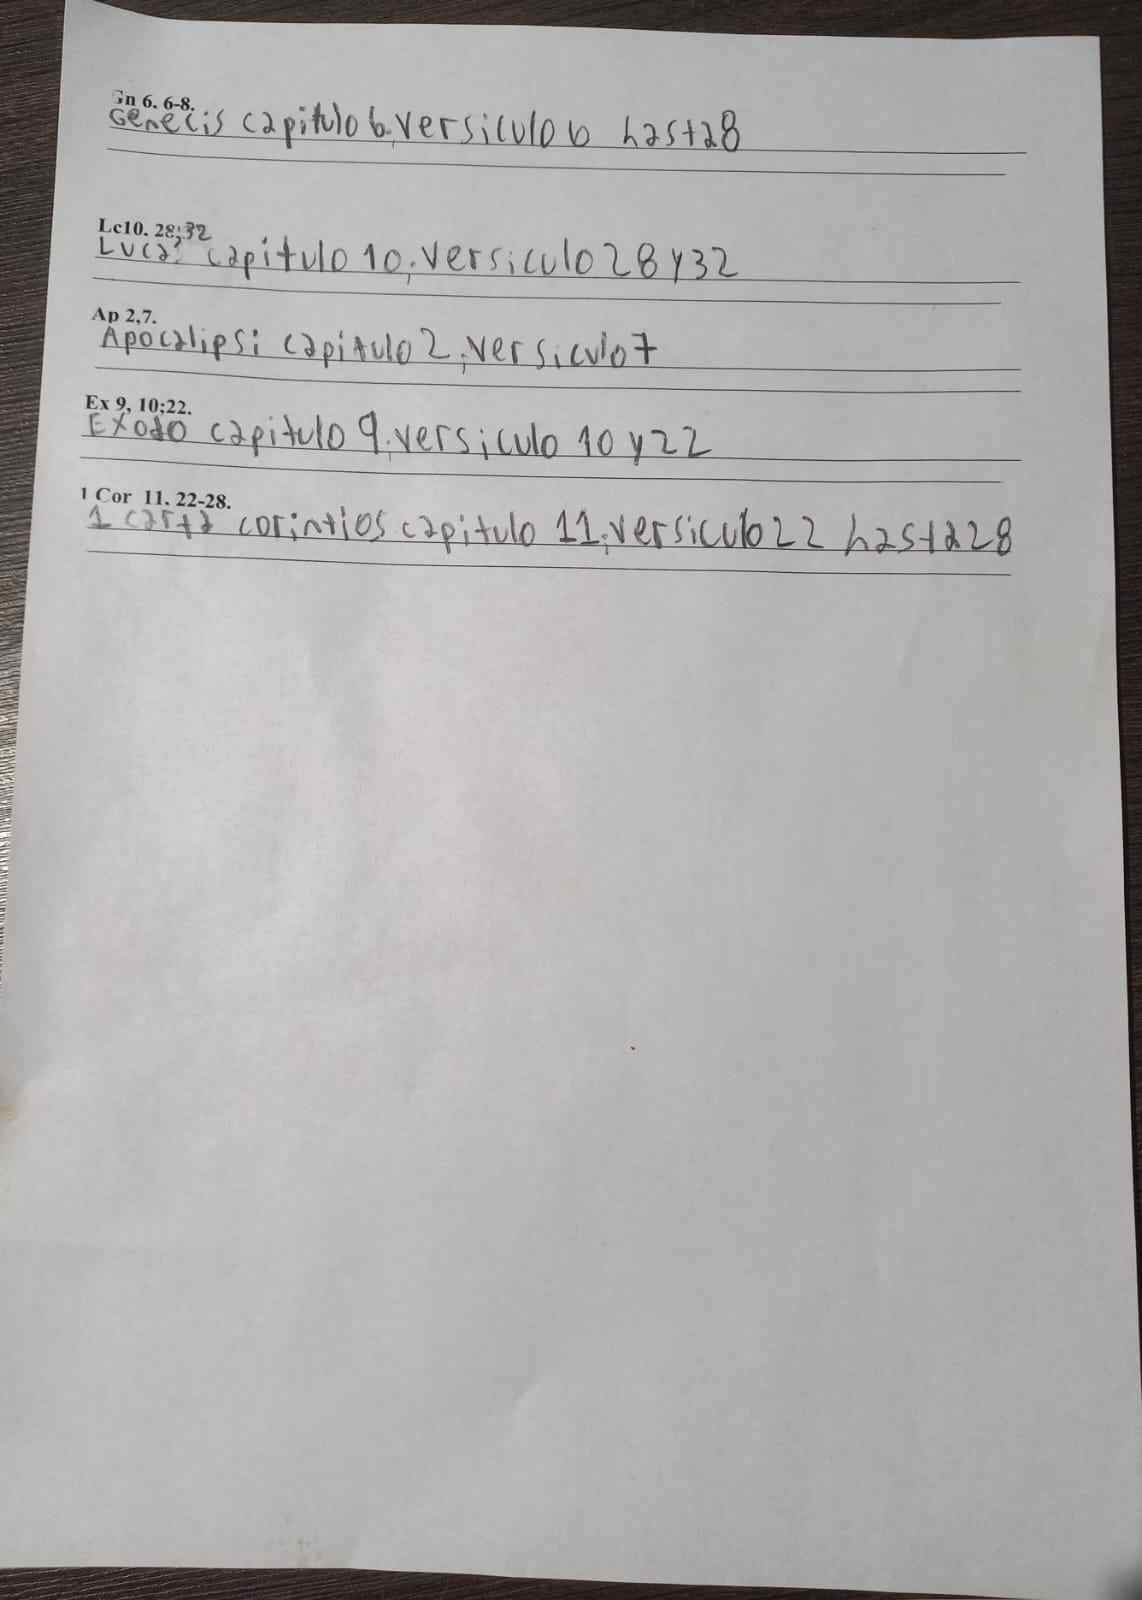 Gn 6. 6-8.
Genecis capitulo 6, versiculo 6 hasta 8
Lc10. 28;32
Lucas capitulo 10, versiculo 28 y 32
Ap 2,7.
Apocalipsi capitulo 2, versiculo 7
Ex 9, 10;22.
Exodo capitulo 9, versiculo 10 y 22
1 Cor 11. 22-28.
1 carta corintios capitulo 11, versiculo 22 hasta 28